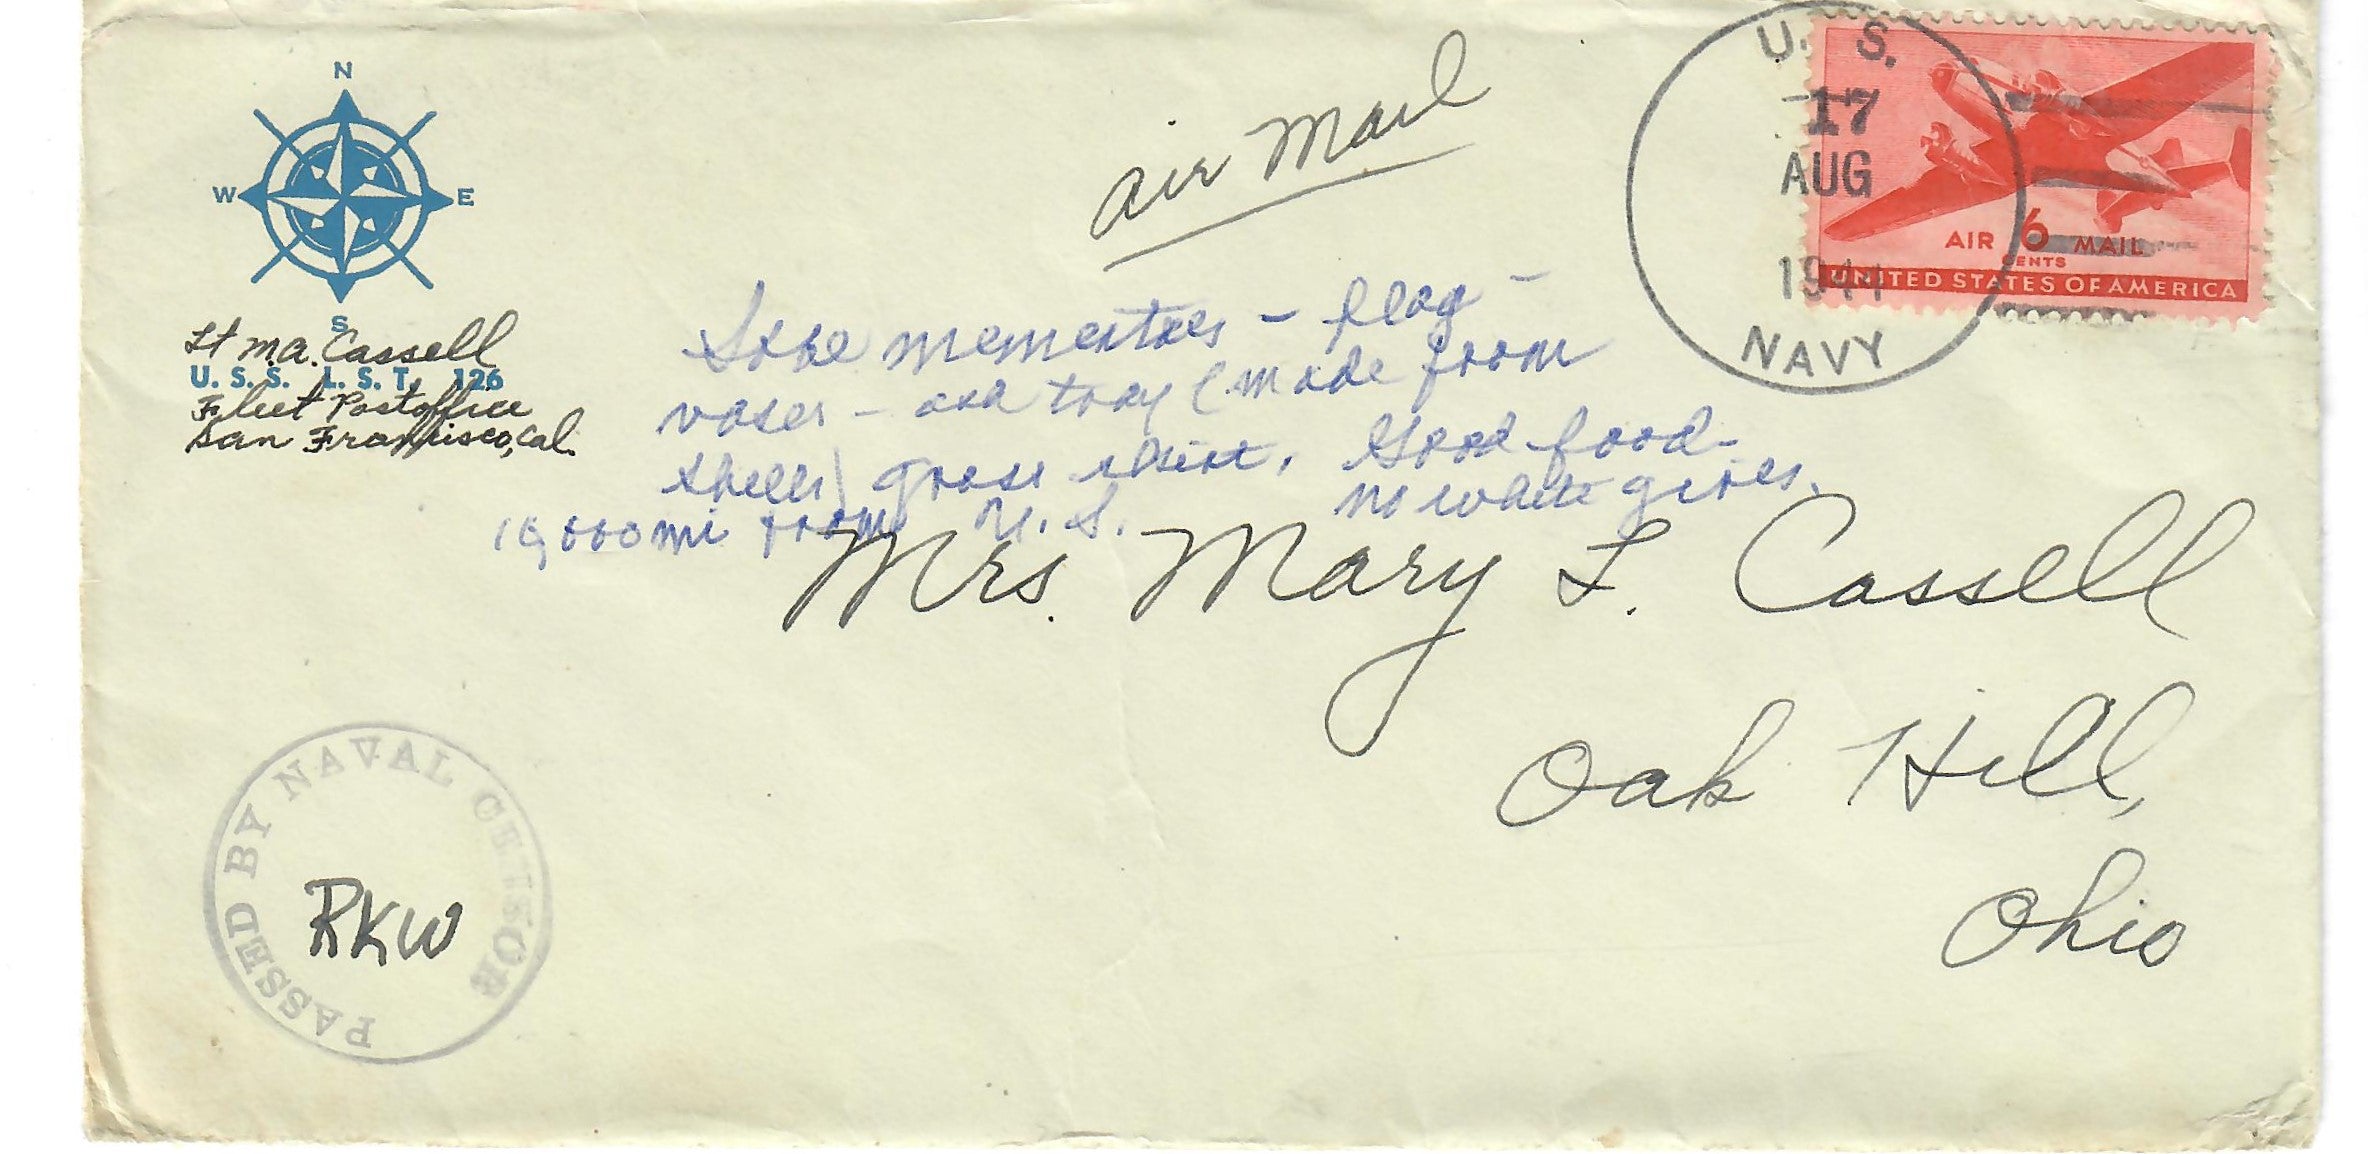 N
W E
S
Lt M.A. Cassell
U. S. S. L. S. T. 126
Fleet Postoffice
San Francisco, Cal.
Air Mail
U. S.
17
AUG
1944
NAVY
AIR 6 MAIL
CENTS
UNITED STATES OF AMERICA
mementoes - flag -
vases - ash tray (made from
shells) grass skirt. Good food -
no white girls.
10,000 mi from U.S.
Mrs. Mary L. Cassell
Oak Hill,
Ohio
PASSED BY NAVAL CENSOR
RKW